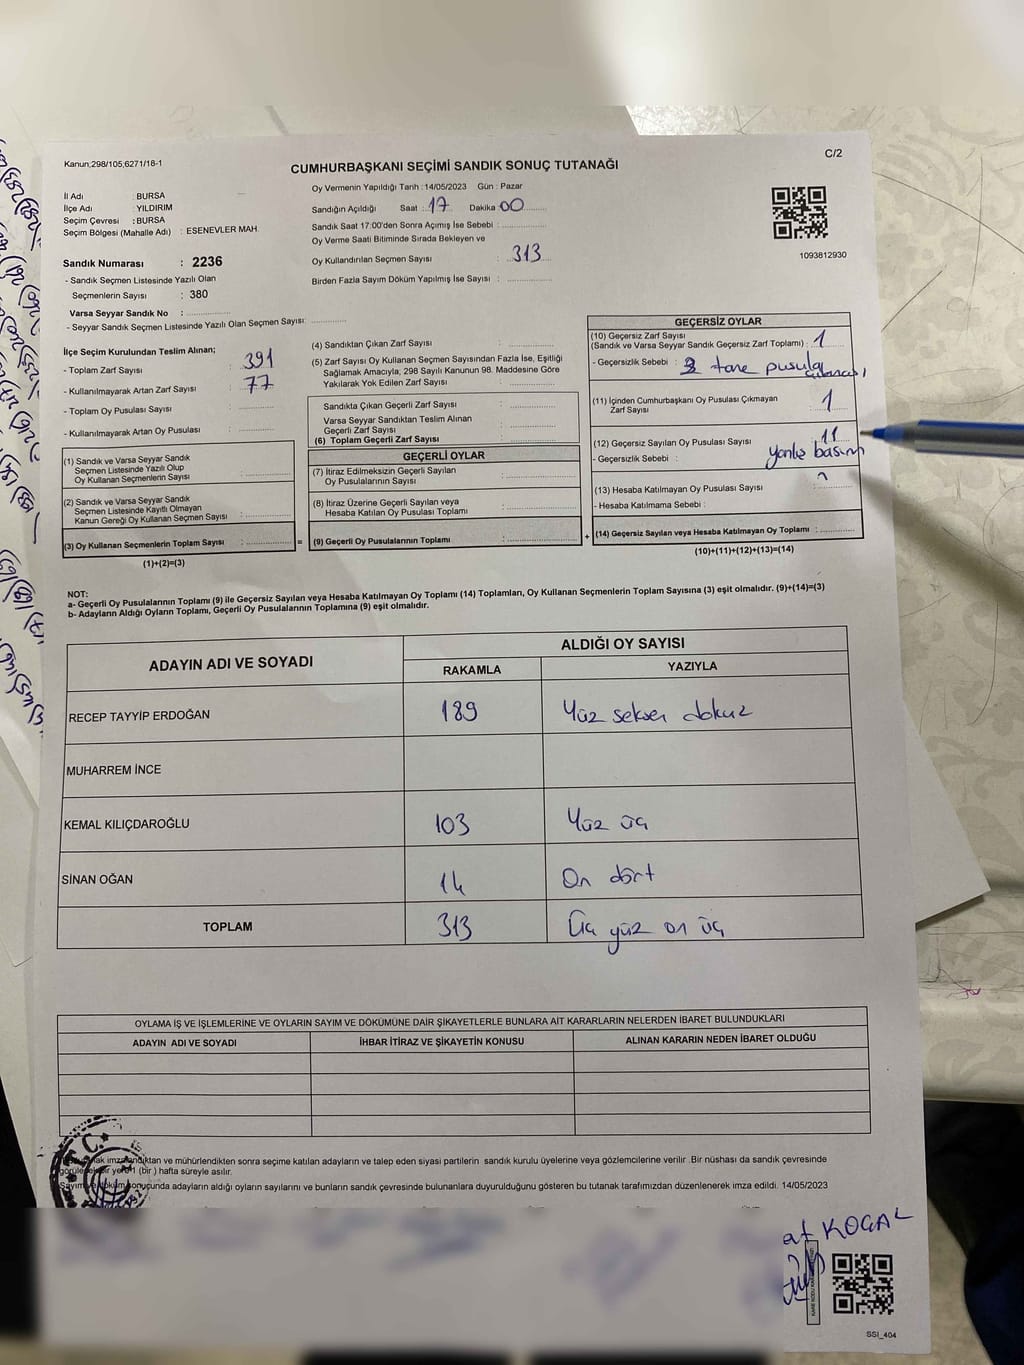 Kanun;298/105,6271/18-1
C/2
CUMHURBAŞKANI SEÇİMİ SANDIK SONUÇ TUTANAĞI
İl Adı : BURSA
İlçe Adı : YILDIRIM
Seçim Çevresi : BURSA
Seçim Bölgesi (Mahalle Adı) : ESENEVLER MAH.
Sandık Numarası : 2236
- Sandık Seçmen Listesinde Yazılı Olan
Seçmenlerin Sayısı : 380
Varsa Seyyar Sandık No :
- Seyyar Sandık Seçmen Listesinde Yazılı Olan Seçmen Sayısı:
Oy Vermenin Yapıldığı Tarih :14/05/2023 Gün : Pazar
Sandığın Açıldığı Saat : 17 Dakika 00
Sandık Saat 17:00'den Sonra Açımış İse Sebebi :
Oy Verme Saati Bitiminde Sırada Bekleyen ve
Oy Kullandırılan Seçmen Sayısı : 313
Birden Fazla Sayım Döküm Yapılmış İse Sayısı :
1093812930
İlçe Seçim Kurulundan Teslim Alınan;
- Toplam Zarf Sayısı : 391
- Kullanılmayarak Artan Zarf Sayısı : 77
- Toplam Oy Pusulası Sayısı :
- Kullanılmayarak Artan Oy Pusulası :
(1) Sandık ve Varsa Seyyar Sandık
Seçmen Listesinde Yazılı Olup
Oy Kullanan Seçmenlerin Sayısı :
(2) Sandık ve Varsa Seyyar Sandık
Seçmen Listesinde Kayıtlı Olmayan
Kanun Gereği Oy Kullanan Seçmen Sayısı :
(3) Oy Kullanan Seçmenlerin Toplam Sayısı :
(1)+(2)=(3)
=
(4) Sandıktan Çıkan Zarf Sayısı :
(5) Zarf Sayısı Oy Kullanan Seçmen Sayısından Fazla İse, Eşitliği
Sağlamak Amacıyla; 298 Sayılı Kanunun 98. Maddesine Göre
Yakılarak Yok Edilen Zarf Sayısı :
Sandıkta Çıkan Geçerli Zarf Sayısı :
Varsa Seyyar Sandıktan Teslim Alınan
Geçerli Zarf Sayısı :
(6) Toplam Geçerli Zarf Sayısı :
GEÇERLİ OYLAR
(7) İtiraz Edilmeksizin Geçerli Sayılan
Oy Pusulalarının Sayısı :
(8) İtiraz Üzerine Geçerli Sayılan veya
Hesaba Katılan Oy Pusulası Toplamı :
(9) Geçerli Oy Pusulalarının Toplamı :
+
GEÇERSİZ OYLAR
(10) Geçersiz Zarf Sayısı
(Sandık ve Varsa Seyyar Sandık Geçersiz Zarf Toplamı) : 1
- Geçersizlik Sebebi : tane pusula
(11) İçinden Cumhurbaşkanı Oy Pusulası Çıkmayan
Zarf Sayısı : 1
(12) Geçersiz Sayılan Oy Pusulası Sayısı : 11
- Geçersizlik Sebebi : yanlış basım
(13) Hesaba Katılmayan Oy Pusulası Sayısı :
- Hesaba Katılmama Sebebi :
(14) Geçersiz Sayılan veya Hesaba Katılmayan Oy Toplamı :
(10)+(11)+(12)+(13)=(14)
NOT:
a- Geçerli Oy Pusulalarının Toplamı (9) ile Geçersiz Sayılan veya Hesaba Katılmayan Oy Toplamı (14) Toplamları, Oy Kullanan Seçmenlerin Toplam Sayısına (3) eşit olmalıdır. (9)+(14)=(3)
b- Adayların Aldığı Oyların Toplamı, Geçerli Oy Pusulalarının Toplamına (9) eşit olmalıdır.
ADAYIN ADI VE SOYADI
ALDIĞI OY SAYISI
RAKAMLA YAZIYLA
RECEP TAYYİP ERDOĞAN 189 Yüz seksen dokuz
MUHARREM İNCE
KEMAL KILIÇDAROĞLU 103 Yüz üç
SİNAN OĞAN 14 On dört
TOPLAM 313 Üç yüz on üç
OYLAMA İŞ VE İŞLEMLERİNE VE OYLARIN SAYIM VE DÖKÜMÜNE DAİR ŞİKAYETLERLE BUNLARA AİT KARARLARIN NELERDEN İBARET BULUNDUKLARI
ADAYIN ADI VE SOYADI İHBAR İTİRAZ VE ŞİKAYETİN KONUSU ALINAN KARARIN NEDEN İBARET OLDUĞU
imzalandıktan ve mühürlendikten sonra seçime katılan adayların ve talep eden siyasi partilerin sandık kurulu üyelerine veya gözlemcilerine verilir .Bir nüshası da sandık çevresinde
yere 1 (bir ) hafta süreyle asılır.
Sayım ve döküm sonucunda adayların aldığı oyların sayılarını ve bunların sandık çevresinde bulunanlara duyurulduğunu gösteren bu tutanak tarafımızdan düzenlenerek imza edildi. 14/05/2023
T.C.
KOÇAL
SSI_404